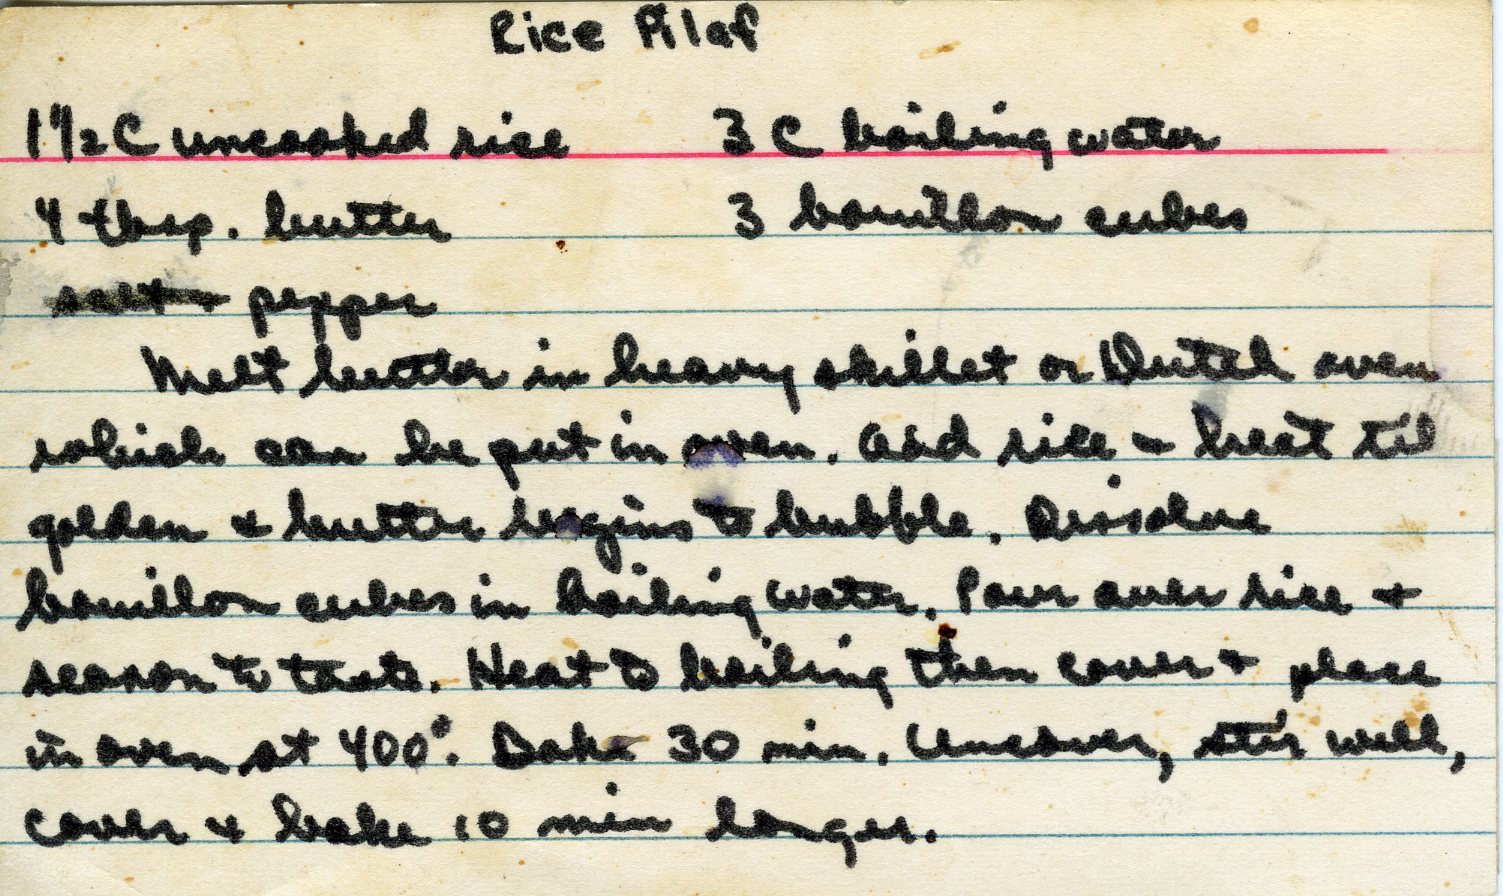 Rice Pilaf
1 1/2 C uncooked rice 3 C boiling water
4 tbsp. butter 3 bouillon cubes
salt + pepper
Melt butter in heavy skillet or Dutch oven
which can be put in oven. Add rice + heat til
golden + butter begins to bubble. Dissolve
bouillon cubes in boiling water. Pour over rice +
season to taste. Heat to boiling then cover + place
in oven at 400°. Bake 30 min. Uncover, stir well,
cover + bake 10 min longer.